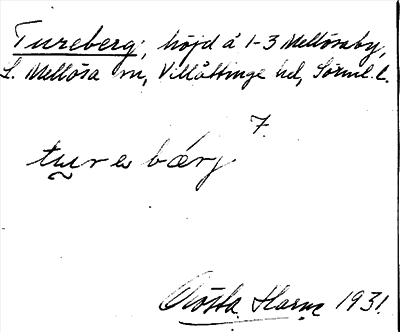 Tureberg, höjd å 1-3 Mellösaby,
L. Mellösa sn, Villåttinge hd, Sörml. l.
7.
tu̯rebærj
Gösta Harne 1931.